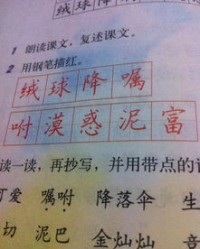 绒球降嘱
1 朗读课文，复述课文。
2 用钢笔描红。
绒球降嘱
咐漠惑泥富
读一读，再抄写，并用带点的
可爱 嘱咐 降落伞 生
切 泥巴 金灿灿 音